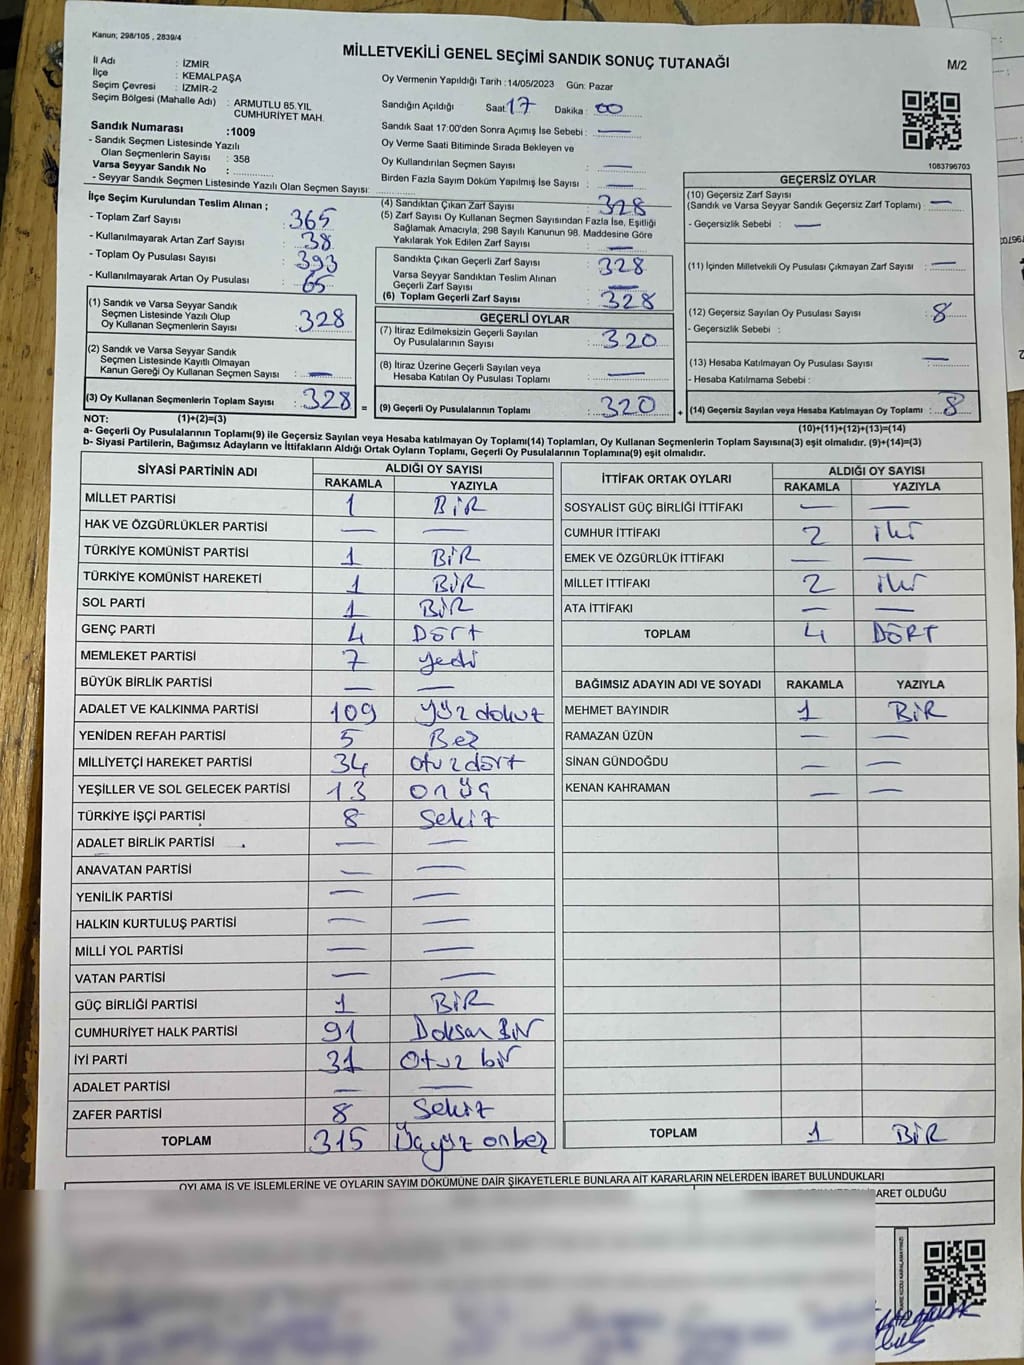 Kanun; 298/105 , 2839/4
MİLLETVEKİLİ GENEL SEÇİMİ SANDIK SONUÇ TUTANAĞI
M/2
İl Adı : İZMİR
İlçe : KEMALPAŞA
Seçim Çevresi : İZMİR-2
Seçim Bölgesi (Mahalle Adı) : ARMUTLU 85.YIL
CUMHURİYET MAH.
Sandık Numarası :1009
- Sandık Seçmen Listesinde Yazılı
Olan Seçmenlerin Sayısı : 358
Varsa Seyyar Sandık No :
- Seyyar Sandık Seçmen Listesinde Yazılı Olan Seçmen Sayısı:
Oy Vermenin Yapıldığı Tarih :14/05/2023 Gün: Pazar
Sandığın Açıldığı Saat 17 Dakika : 00
Sandık Saat 17:00'den Sonra Açımış İse Sebebi : —
Oy Verme Saati Bitiminde Sırada Bekleyen ve
Oy Kullandırılan Seçmen Sayısı —
Birden Fazla Sayım Döküm Yapılmış İse Sayısı : —
1083796703
İlçe Seçim Kurulundan Teslim Alınan ;
- Toplam Zarf Sayısı : 365
- Kullanılmayarak Artan Zarf Sayısı : 38
- Toplam Oy Pusulası Sayısı : 393
- Kullanılmayarak Artan Oy Pusulası : 65
(1) Sandık ve Varsa Seyyar Sandık
Seçmen Listesinde Yazılı Olup
Oy Kullanan Seçmenlerin Sayısı : 328
(2) Sandık ve Varsa Seyyar Sandık
Seçmen Listesinde Kayıtlı Olmayan
Kanun Gereği Oy Kullanan Seçmen Sayısı : —
(3) Oy Kullanan Seçmenlerin Toplam Sayısı : 328 =
(4) Sandıktan Çıkan Zarf Sayısı : 328
(5) Zarf Sayısı Oy Kullanan Seçmen Sayısından Fazla İse, Eşitliği
Sağlamak Amacıyla, 298 Sayılı Kanunun 98. Maddesine Göre
Yakılarak Yok Edilen Zarf Sayısı : —
Sandıkta Çıkan Geçerli Zarf Sayısı : 328
Varsa Seyyar Sandıktan Teslim Alınan
Geçerli Zarf Sayısı : —
(6) Toplam Geçerli Zarf Sayısı : 328
GEÇERLİ OYLAR
(7) İtiraz Edilmeksizin Geçerli Sayılan
Oy Pusulalarının Sayısı : 320
(8) İtiraz Üzerine Geçerli Sayılan veya
Hesaba Katılan Oy Pusulası Toplamı : —
(9) Geçerli Oy Pusulalarının Toplamı : 320 +
GEÇERSİZ OYLAR
(10) Geçersiz Zarf Sayısı
(Sandık ve Varsa Seyyar Sandık Geçersiz Zarf Toplamı) : —
- Geçersizlik Sebebi : —
(11) İçinden Milletvekili Oy Pusulası Çıkmayan Zarf Sayısı : —
(12) Geçersiz Sayılan Oy Pusulası Sayısı : 8
- Geçersizlik Sebebi :
(13) Hesaba Katılmayan Oy Pusulası Sayısı : —
- Hesaba Katılmama Sebebi :
(14) Geçersiz Sayılan veya Hesaba Katılmayan Oy Toplamı : 8
NOT: (1)+(2)=(3) (10)+(11)+(12)+(13)=(14)
a- Geçerli Oy Pusulalarının Toplamı(9) ile Geçersiz Sayılan veya Hesaba katılmayan Oy Toplamı(14) Toplamları, Oy Kullanan Seçmenlerin Toplam Sayısına(3) eşit olmalıdır. (9)+(14)=(3)
b- Siyasi Partilerin, Bağımsız Adayların ve İttifakların Aldığı Ortak Oyların Toplamı, Geçerli Oy Pusulalarının Toplamına(9) eşit olmalıdır.
SİYASİ PARTİNİN ADI ALDIĞI OY SAYISI
RAKAMLA YAZIYLA
MİLLET PARTİSİ 1 BİR
HAK VE ÖZGÜRLÜKLER PARTİSİ — —
TÜRKİYE KOMÜNİST PARTİSİ 1 BİR
TÜRKİYE KOMÜNİST HAREKETİ 1 BİR
SOL PARTİ 1 BİR
GENÇ PARTİ 4 Dört
MEMLEKET PARTİSİ 7 yedi
BÜYÜK BİRLİK PARTİSİ — —
ADALET VE KALKINMA PARTİSİ 109 yüz dokuz
YENİDEN REFAH PARTİSİ 5 Beş
MİLLİYETÇİ HAREKET PARTİSİ 34 otuz dört
YEŞİLLER VE SOL GELECEK PARTİSİ 13 on üç
TÜRKİYE İŞÇİ PARTİSİ 8 Sekiz
ADALET BİRLİK PARTİSİ — —
ANAVATAN PARTİSİ — —
YENİLİK PARTİSİ — —
HALKIN KURTULUŞ PARTİSİ — —
MİLLİ YOL PARTİSİ — —
VATAN PARTİSİ — —
GÜÇ BİRLİĞİ PARTİSİ 1 BİR
CUMHURİYET HALK PARTİSİ 91 Doksan BİR
İYİ PARTİ 31 Otuz bir
ADALET PARTİSİ — —
ZAFER PARTİSİ 8 Sekiz
TOPLAM 315 Üçyüz on beş
İTTİFAK ORTAK OYLARI ALDIĞI OY SAYISI
RAKAMLA YAZIYLA
SOSYALİST GÜÇ BİRLİĞİ İTTİFAKI — —
CUMHUR İTTİFAKI 2 iki
EMEK VE ÖZGÜRLÜK İTTİFAKI — —
MİLLET İTTİFAKI 2 iki
ATA İTTİFAKI — —
TOPLAM 4 DÖRT
BAĞIMSIZ ADAYIN ADI VE SOYADI RAKAMLA YAZIYLA
MEHMET BAYINDIR 1 BİR
RAMAZAN ÜZÜN — —
SİNAN GÜNDOĞDU — —
KENAN KAHRAMAN — —
TOPLAM 1 BİR
OYLAMA İŞ VE İŞLEMLERİNE VE OYLARIN SAYIM DÖKÜMÜNE DAİR ŞİKAYETLERLE BUNLARA AİT KARARLARIN NELERDEN İBARET BULUNDUKLARI
ARET OLDUĞU